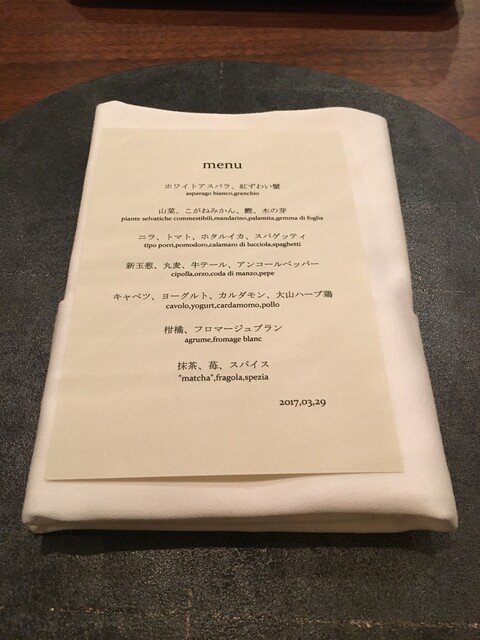 menu
ホワイトアスパラ、紅ずわい蟹
asparago bianco,granchio
山菜、こがねみかん、鰹、木の芽
piante selvatiche commestibili,mandarino,palamita,gemma di foglia
ニラ、トマト、ホタルイカ、スパゲッティ
tipo porri,pomodoro,calamaro di lucciola,spaghetti
新玉葱、丸麦、牛テール、アンコールペッパー
cipolla,orzo,coda di manzo,pepe
キャベツ、ヨーグルト、カルダモン、大山ハーブ鶏
cavolo,yogurt,cardamomo,pollo
柑橘、フロマージュブラン
agrume,fromage blanc
抹茶、苺、スパイス
"matcha",fragola,spezia
2017,03,29